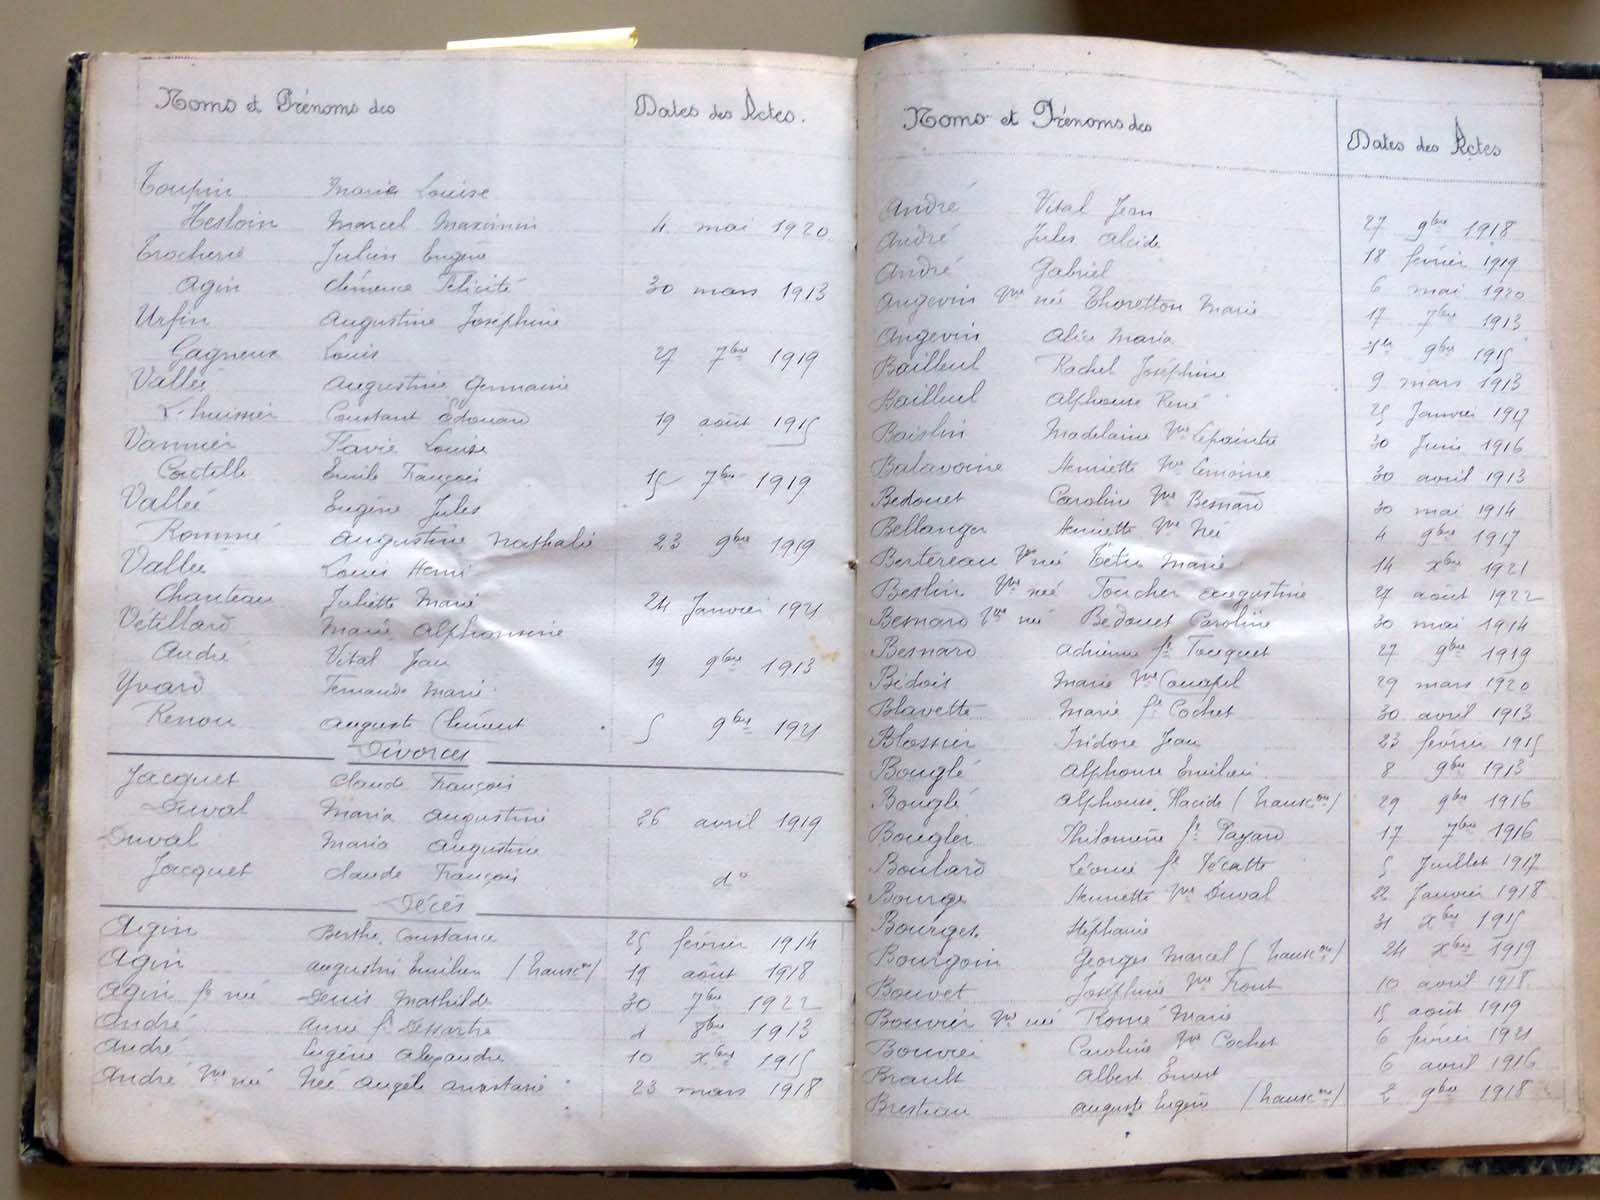 Noms et Prénoms des Dates des Actes.
Toupin Marie Louise
Hesloin Marcel Maximin 4 mai 1920
Trocherie Julien Eugène
Agin Clémence Félicité 30 mars 1913
Urfin Augustine Joséphine
Gagneux Louis 27 7bre 1919
Vallée Augustine Germaine
L'huissier Constant Edouard 19 août 1915
Vannier Flavie Louise
Coutelle Emile François 15 7bre 1919
Vallée Eugène Jules
Rommé Augustine Nathalie 23 9bre 1919
Vallée Louis Henri
Chanteau Juliette Marie 24 Janvier 1921
Vétillard Marie Alphonsine
André Vital Jean 19 9bre 1913
Yvard Fernande Marie
Renou Auguste Clément 5 9bre 1921
Divorces
Jacquet Claude François
Duval Maria Augustine 26 avril 1919
Duval Maria Augustine
Jacquet Claude François do
Décès
Agin Berthe Constance 25 février 1914
Agin Augustin Emilien (transcon) 19 août 1918
Agin fe née Denis Mathilde 30 7bre 1922
André Anne fe Dessartre 1 8bre 1913
André Eugène Alexandre 10 xbre 1915
André Vve née Née Angèle Anastasie 23 mars 1918
Noms et Prénoms des Dates des Actes
André Vital Jean 27 9bre 1918
André Jules Alcide 18 février 1919
André Gabriel 6 mai 1920
Angevin Vve née Thoretton Marie 17 7bre 1913
Angevin Alice Maria 9bre 1915
Bailleul Rachel Joséphine 9 mars 1913
Bailleul Alphonse René 25 Janvier 1917
Baislin Madelaine Vve Lepaintre 30 Juin 1916
Balavoine Henriette Vve Lemoine 30 avril 1913
Bedouet Caroline Vve Besnard 30 mai 1914
Bellanger Henriette Vve Née 4 9bre 1917
Bertereau Vve née Têtu Marie 14 xbre 1921
Beslin Vve née Foucher Augustine 27 août 1922
Besnard Vve née Bedouet Caroline 30 mai 1914
Besnard Adrienne fe Touquet 27 9bre 1919
Bidois Marie Vve Couapel 29 mars 1920
Blavette Marie fe Cochet 30 avril 1913
Blossier Isidore Jean 23 février 1915
Bouglé Alphonse Emilien 8 9bre 1913
Bouglé Alphonse Placide (transcon) 29 9bre 1916
Bougler Philomène fe Payard 17 7bre 1916
Boulard Léonie fe Décatte 5 Juillet 1917
Bourge Henriette Vve Duval 22 Janvier 1918
Bourget Stéphanie 31 xbre 1915
Bourgoin Georges Marcel (transcon) 24 xbre 1919
Bouvet Joséphine Vve Front 10 avril 1918
Bouvier Vve née Romé Marie 15 août 1919
Bouvier Caroline Vve Cochet 6 février 1921
Brault Albert Ernest 6 avril 1916
Bresteau Auguste Eugène (transcon) 2 9bre 1918